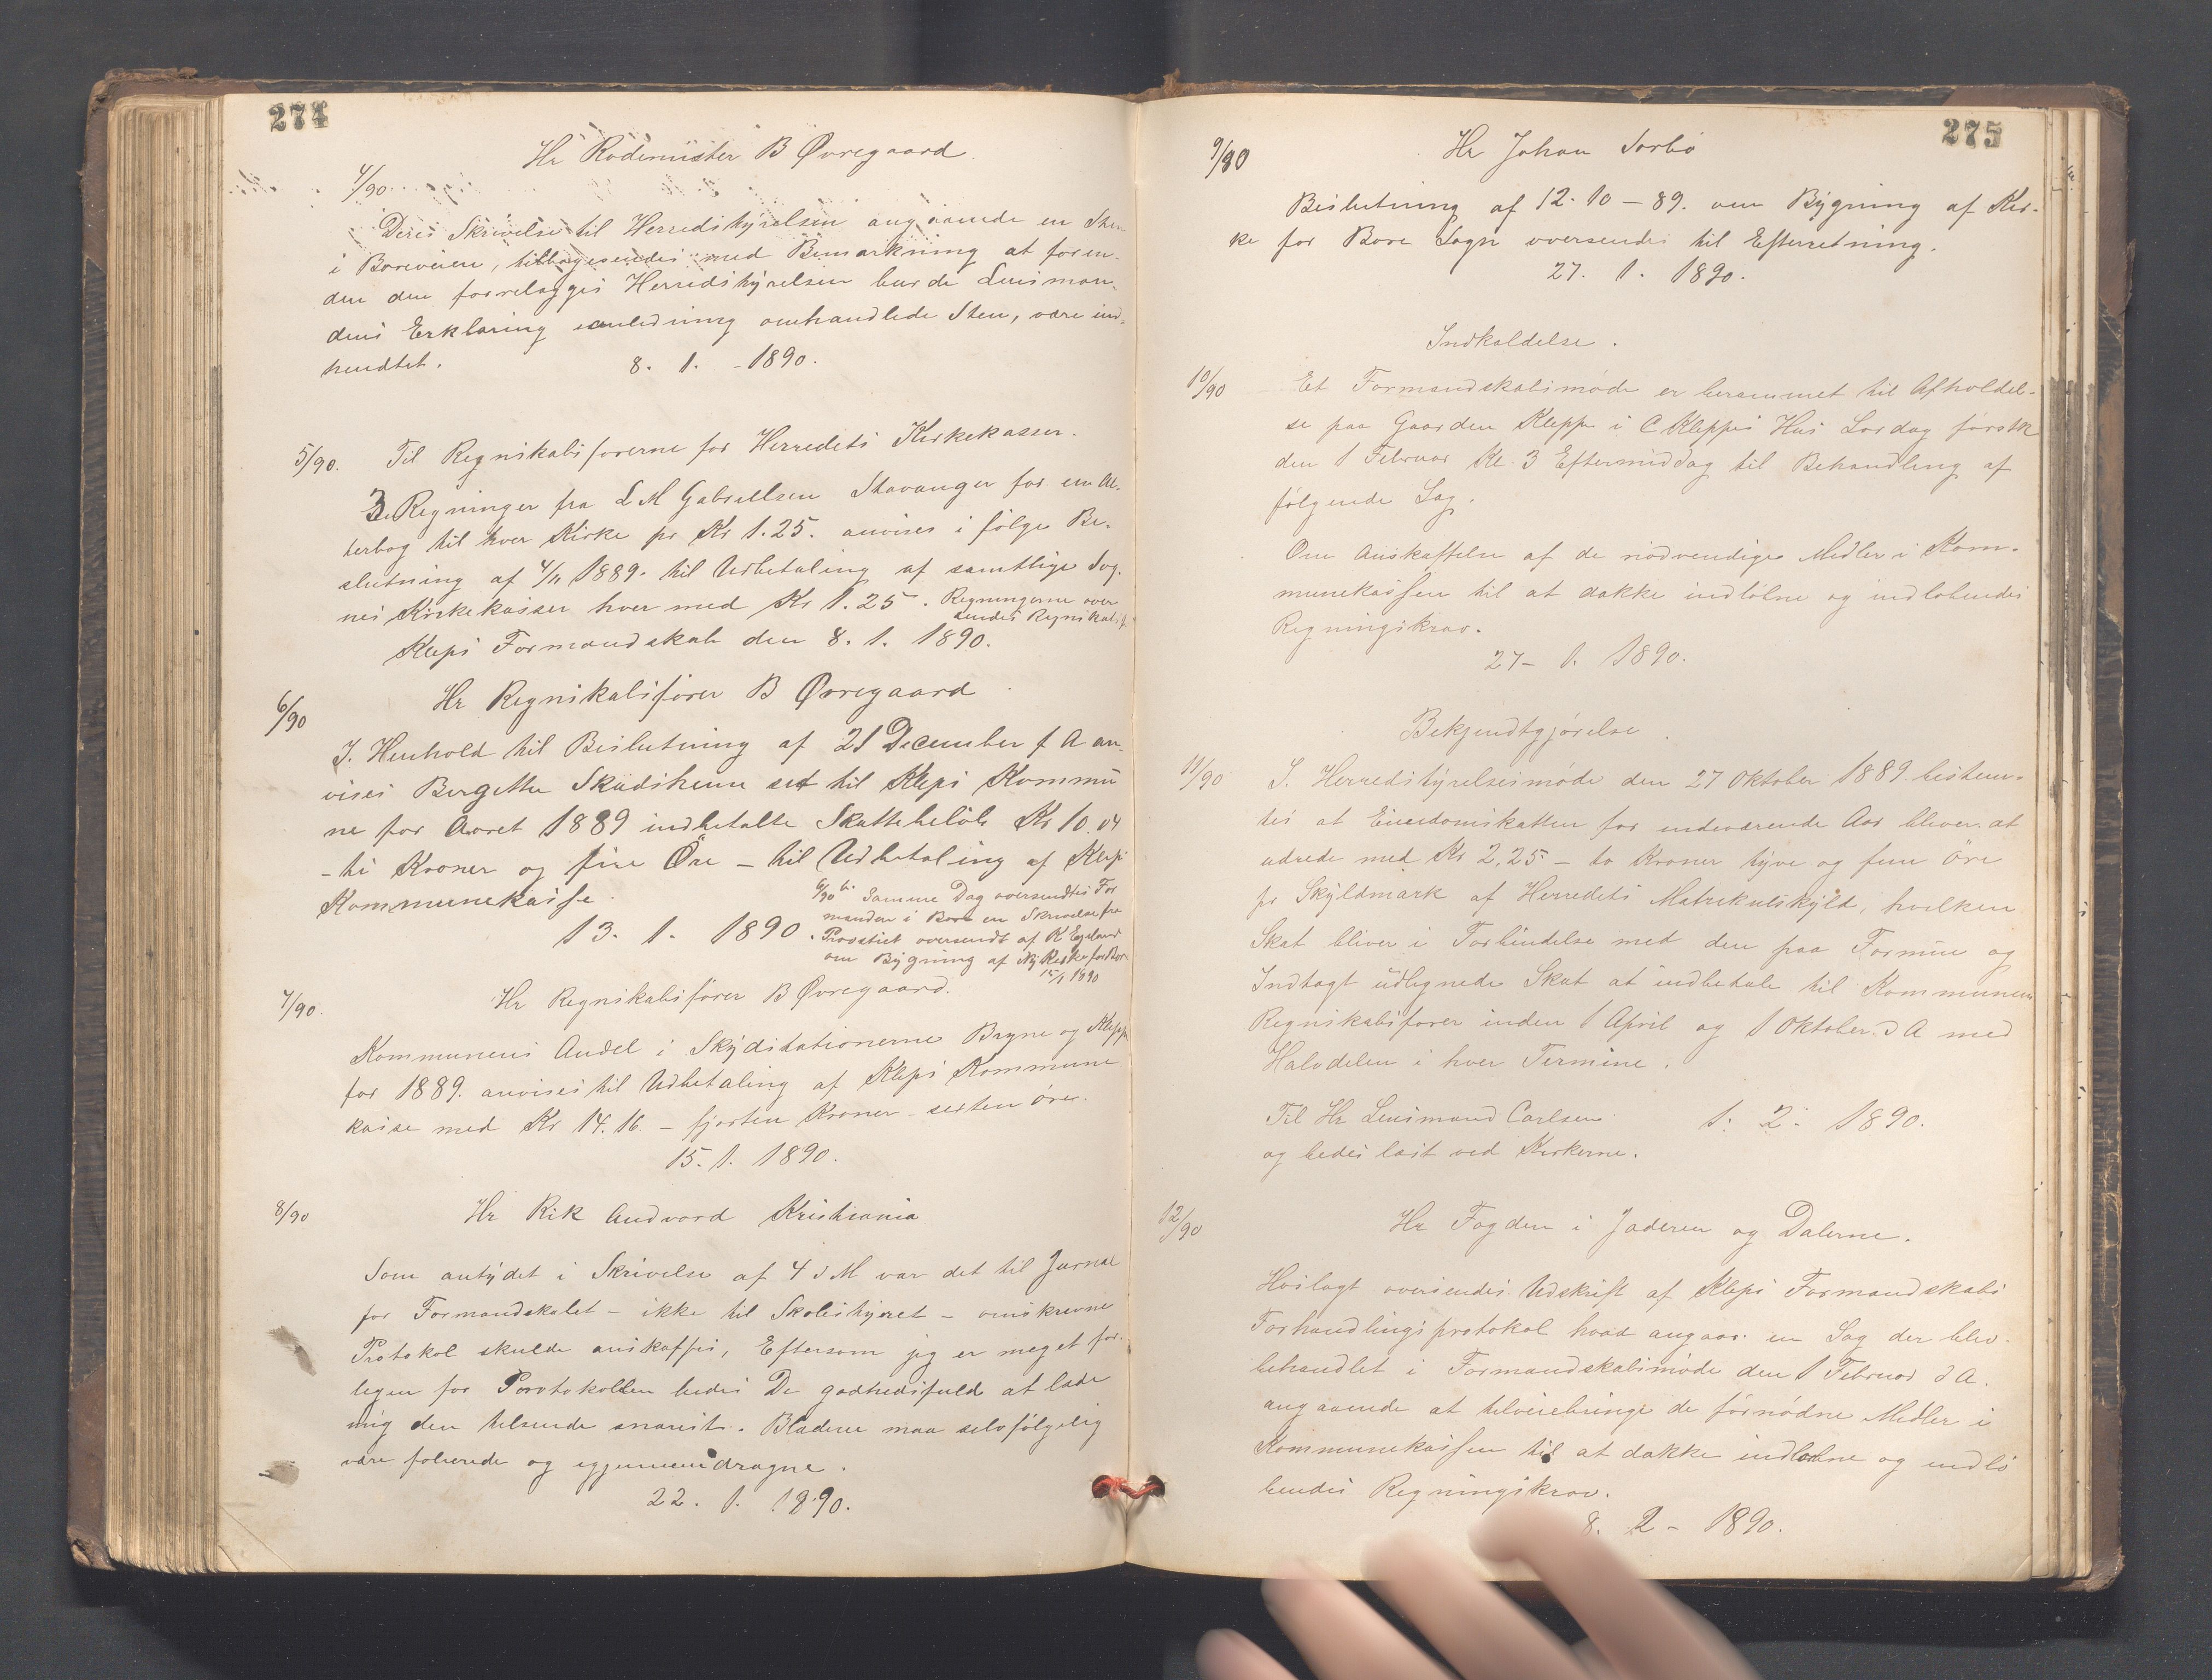 274
Hr Rodemester B Øvregaard
4/90
Deres Skrivelse til Herredstyrelsen angaaende en Sten
i Boreveien, tilbagesendes med Bemærkning at foren-
den den forelægges Herredstyrelsen burde Lensman-
dens Erklæring omhandlede Sten, være ind-
hendtet.
8. 1. - 1890.
5/90. Til Regnskabsførerne for Herredets Kirkekasser.
3 Regninger fra L M Gabrielsen Stavanger for en Al-
terbog til hver Kirke pr Kr 1.25. anvises i følge Be-
slutning af 4/11 1889. til Udbetaling af samtlige Sog-
nes Kirkekasser hver med Kr 1.25. Regningerne over
sendes Regnskabsf
Kleps Formandskab den 8. 1. 1890.
6/90
Hr Regnskabsfører B Øvregaard
I. Henhold til Beslutning af 21 December f A an-
vises Bergette Skadsheim sit til Kleps Kommu
ne for Aaret 1889 indbetalte Skattebeløb Kr 10.04
- ti Kroner og fire Øre - til Udbetaling af Klep
Kommunekasse.
13. 1. 1890.
6/90 b. Samme Dag oversendtes For
manden i Bore en Skrivelse fra
Provstiet oversendt af K Egeland
om Bygning af Ny Kirke for Bore
15/1 1890
7/90.
Hr Regnskabsfører B Øvregaard.
Kommunens Andel i Skydsstationerne Bryne og Klepp
for 1889. anvises til Udbetaling af Kleps Kommune
kasse med Kr 14.16. - fjorten Kroner sexten øre.
15. 1. 1890.
8/90
Hr Rik Andvord Kristiania
Som antydet i Skrivelse af 4 d M var det til Jurnal
for Formandskabet - ikke til Skolestyret - omskrevne
Protokol skulde anskaffes, Eftersom jeg er meget for-
legen for Porotokollen bedes De godhedsfuld at lade
mig den tilsende snarest. Bladene maa selvfølgelig
være folierede og igjennemdragne.
22. 1. 1890.
275
9/90
Hr Johan Sørbø
Beslutning af 12. 10 - 89. om Bygning af Kir-
ke for Bore Sogn oversendes til Efterretning.
27. 1. 1890.
Indkaldelse.
10/90 Et Formandskabsmøde er berammet til Afholdel-
se paa Gaarden Klepp i C Klepps Hus Lørdag førstk
den 1 Februar Kl. 3 Eftermiddag til Behandling af
følgende Sag.
Om Anskaffelse af de nødvendige Midler i Kom-
munekassen til at dække indløbne og indløbendes
Regningskrav.
27 - 1. 1890.
Bekjendtgjørelse.
11/90 I. Herredstyrelsesmøde den 27 Oktober 1889 bestem-
tes at Eiendomskatten for indeværende Aar bliver at
udrede med Kr 2,25 - to Kroner tyve og fem øre
pr Skyldmark af Herredets Matrikulskyld, hvilken
Skat bliver i Forbindelse med den paa Formue og
Indtægt udlignede Skat at indbetale til Kommunens
Regnskabsfører inden 1 April og 1 Oktober d A med
Halvdelen i hver Termine.
Til Hr Lensmand Carlsen
1. 2. 1890.
og bedes læst ved Kirkerne.
12/90
Hr Fogden i Jæderen og Dalerne.
Hoslagt oversendes Udskrift af Kleps Formandskabs
Forhandlingsprotokol hvad angaar en Sag der blev
behandlet i Formandskabsmøde den 1 Februar d A.
angaaende at tilveiebringe de fornødne Midler i
Kommunekassen til at dække indløbne og indlø
bendes Regningskrav.
8. 2 - 1890.